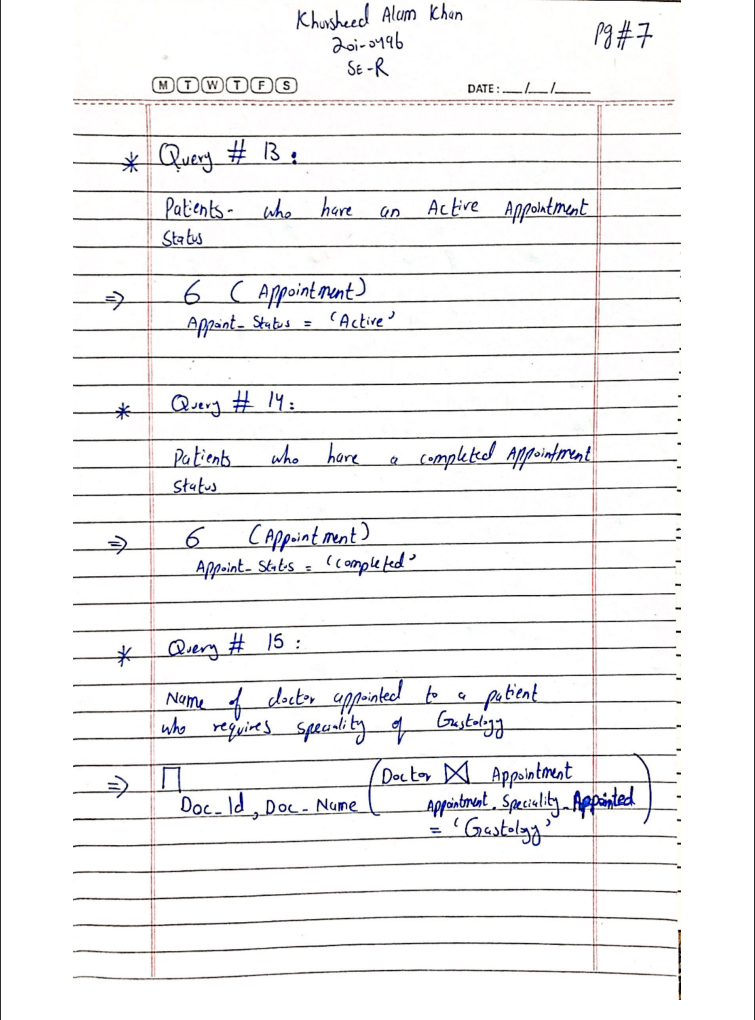 Khursheed Alam Khan
20i-0496
SE-R
Pg#7
M T W T F S
DATE: __/__/__
* Query # 13 :
Patients- who have an Active Appointment
Status
=> 6 (Appointment)
Appoint_Status = 'Active'
* Query # 14 :
Patients who have a completed Appointment
Status
=> 6 (Appointment)
Appoint_Status = 'Completed'
* Query # 15 :
Name of doctor appointed to a patient
who requires speciality of Gastology
=> Π (Doctor ⋈ Appointment
Doc_Id, Doc_Name Appointment.Speciality_Appointed)
= 'Gastology'